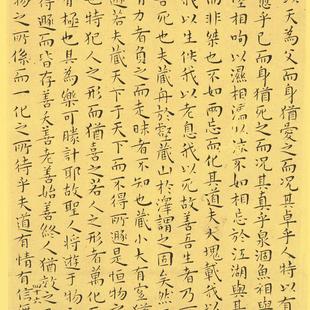 以天為父而身猶愛之而況其卓乎人特以有
愈乎已而身猶死之而況其真乎泉涸魚相與
陸相呴以濕相濡以沫不如相忘於江湖與其
而非桀也不如兩忘而化其道夫大塊載我以
我以生佚我以老息我以死故善吾生者乃
善吾死也夫藏舟於壑藏山於澤謂之固矣然
有力者負之而走昧者不知也藏小大有宜猶
遯若夫藏天下于天下而不得所遯是恒物之
也特犯人之形而猶喜之若人之形者萬化
有極也其為樂可勝計耶故聖人將遊于物
得遯而皆存善夭善老善始善終人猶效之
物之所係而一化之所待乎夫道有情有信
四十六